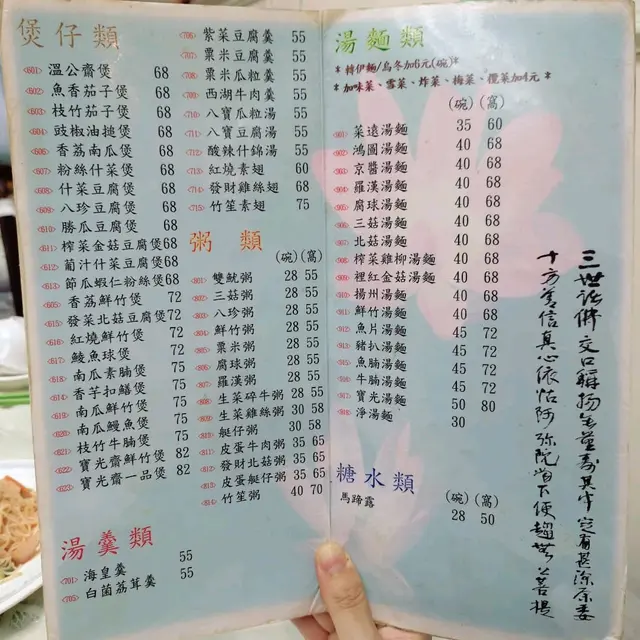 煲仔類
601 溫公齋煲 68
602 魚香茄子煲 68
603 枝竹茄子煲 68
604 豉椒油搥煲 68
606 香荔南瓜煲 68
607 粉絲什菜煲 68
608 什菜豆腐煲 68
609 八珍豆腐煲 68
610 勝瓜豆腐煲 68
611 榨菜金菇豆腐煲 68
612 葡汁什菜豆腐煲 68
613 節瓜蝦仁粉絲煲 68
605 香荔鮮竹煲 72
615 發菜北菇豆腐煲 72
616 紅燒鮮竹煲 72
617 鯪魚球煲 72
618 南瓜素腩煲 75
614 香芋扣鱔煲 75
619 南瓜鮮竹煲 75
620 南瓜鰻魚煲 75
621 枝竹牛腩煲 75
622 寶光齋鮮竹煲 82
623 寶光齋一品煲 82
湯羹類
701 海皇羹 55
705 白菌荔茸羹 55
706 紫菜豆腐羹 55
707 粟米豆腐羹 55
708 粟米瓜粒羹 55
709 西湖牛肉羹 55
710 八寶瓜粒湯 55
711 八寶豆腐湯 55
712 酸辣什錦湯 55
713 紅燒素翅 60
714 發財雞絲翅 68
715 竹笙素翅 75
粥類
(碗)(窩)
801 雙魷粥 28 55
802 三菇粥 28 55
803 八珍粥 28 55
804 鮮竹粥 28 55
805 粟米粥 28 55
806 腐球粥 28 55
807 羅漢粥 28 55
808 生菜碎牛粥 28 55
809 生菜雞絲粥 30 58
810 艇仔粥 30 58
811 皮蛋牛肉粥 35 65
812 發財北菇粥 35 65
813 皮蛋艇仔粥 35 65
814 竹笙粥 40 70
湯麵類
* 轉伊麵/烏冬加6元(碗)*
* 加味菜、雪菜、炸菜、梅菜、欖菜加4元 *
(碗)(窩)
901 菜遠湯麵 35 60
902 鴻圖湯麵 40 68
903 京醬湯麵 40 68
904 羅漢湯麵 40 68
905 腐球湯麵 40 68
906 三菇湯麵 40 68
907 北菇湯麵 40 68
908 榨菜雞柳湯麵 40 68
909 裡紅金菇湯麵 40 68
910 揚州湯麵 40 68
911 鮮竹湯麵 40 68
912 魚片湯麵 45 72
913 豬扒湯麵 45 72
915 魚腩湯麵 45 72
916 牛腩湯麵 45 72
917 寶光湯麵 50 80
918 淨湯麵 30
糖水類
(碗)(窩)
馬蹄露 28 50
三世諸佛交口稱揚無量壽其中定有甚深原委
十方含信真心依怙阿彌陀當下便趨無上菩提